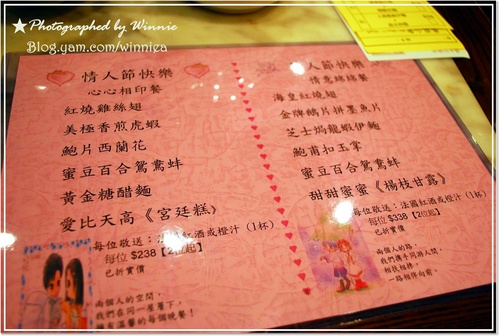 ★Photographed by Winnie
Blog.yam.com/winniea
情人節快樂
心心相印餐
紅燒雞絲翅
美極香煎虎蝦
鮑片西蘭花
蜜豆百合鴛鴦蚌
黃金糖醋麵
愛比天高《宮廷糕》
每位敬送：法國紅酒或橙汁（1杯）
每位 $238【2位起】
已折實價
兩個人的空間，
我們在同一屋簷下，
情人節快樂
情意綿綿餐
海皇紅燒翅
金牌鵝片拼墨魚片
芝士焗龍蝦伊麵
鮑甫扣玉掌
蜜豆百合鴛鴦蚌
甜甜蜜蜜《楊枝甘露》
每位敬送：法國紅酒或橙汁（1杯）
每位 $338【2位起】
已折實價
兩個人的路，
我們攜手同遊人間，
相扶相持，
一路相伴向前。